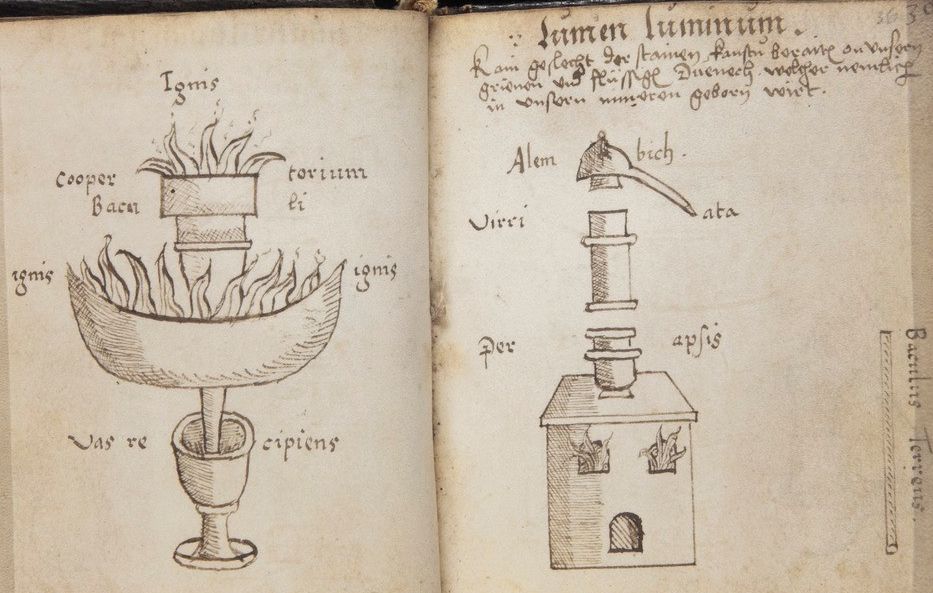 Ignis
Cooper torium
Bacu li
ignis ignis
Vas re cipiens
36
Lumen luminum.
Kain geslecht der stainen kanstu beraitten on unsern
grienen und flüssigen Duenech welcher nemlich
in unsern mineren geborn wirt.
Alem bich.
Virri ata
Per apsis
Baculus Terreus.